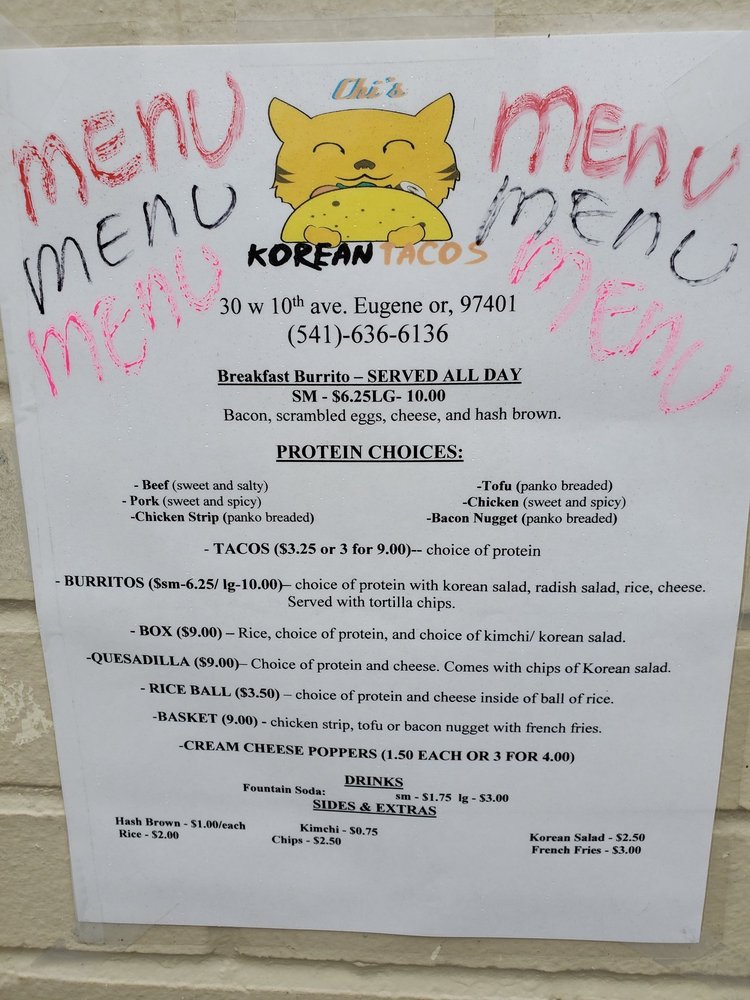 Chi's
MENU MENU
MENU MENU
MENU MENU
KOREAN TACOS
30 w 10th ave. Eugene or, 97401
(541)-636-6136
Breakfast Burrito – SERVED ALL DAY
SM - $6.25LG- 10.00
Bacon, scrambled eggs, cheese, and hash brown.
PROTEIN CHOICES:
- Beef (sweet and salty) -Tofu (panko breaded)
- Pork (sweet and spicy) -Chicken (sweet and spicy)
-Chicken Strip (panko breaded) -Bacon Nugget (panko breaded)
- TACOS ($3.25 or 3 for 9.00)-- choice of protein
- BURRITOS ($sm-6.25/ lg-10.00)– choice of protein with korean salad, radish salad, rice, cheese.
Served with tortilla chips.
- BOX ($9.00) – Rice, choice of protein, and choice of kimchi/ korean salad.
-QUESADILLA ($9.00)– Choice of protein and cheese. Comes with chips of Korean salad.
- RICE BALL ($3.50) – choice of protein and cheese inside of ball of rice.
-BASKET (9.00) - chicken strip, tofu or bacon nugget with french fries.
-CREAM CHEESE POPPERS (1.50 EACH OR 3 FOR 4.00)
DRINKS
Fountain Soda: sm - $1.75 lg - $3.00
SIDES & EXTRAS
Hash Brown - $1.00/each Kimchi - $0.75 Korean Salad - $2.50
Rice - $2.00 Chips - $2.50 French Fries - $3.00